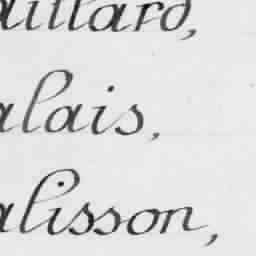 aillard,
alais,
alisson,